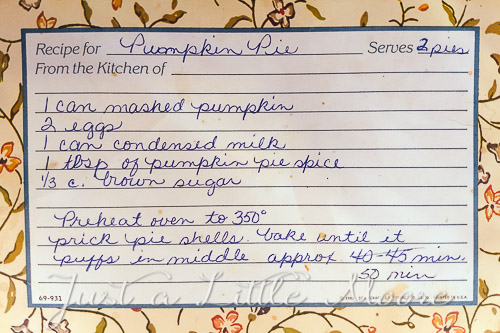 Recipe for Pumpkin Pie Serves 2 pies
From the Kitchen of
1 can mashed pumpkin
2 eggs
1 can condensed milk
1 tbsp of pumpkin pie spice
1/3 c. brown sugar
Preheat oven to 350°
prick pie shells. bake until it
puffs in middle approx. 40-45 min.
50 min
Just a Little
69-931